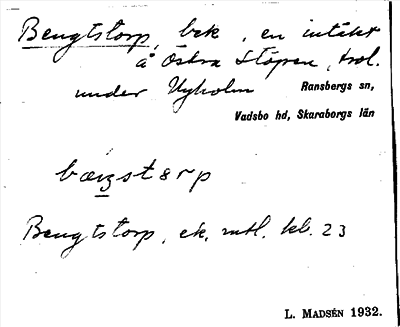 Bengtstorp, bek, en intäkt
å Östra Stöpen, trol.
under Nyholm Ransbergs sn,
Vadsbo hd, Skaraborgs län
Bengtstorp, ek, mtl. kl. 23
L. MADSÉN 1932.